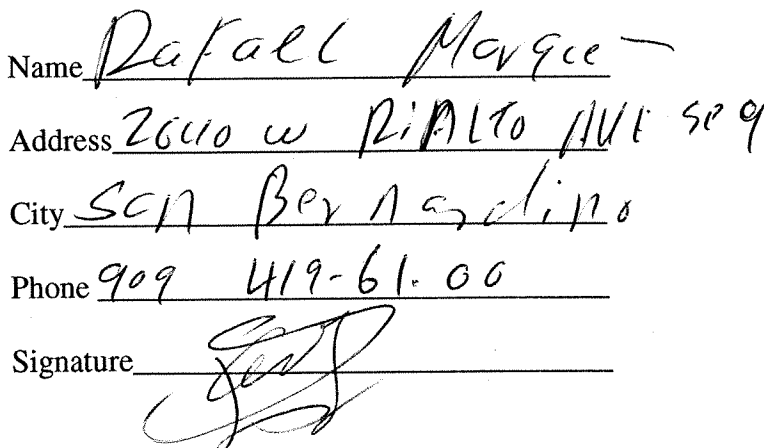 Name Rafaell Marque
Address 2640 W RiALTO AVE SP 9
City San Bernardino
Phone 909 419-61.00
Signature